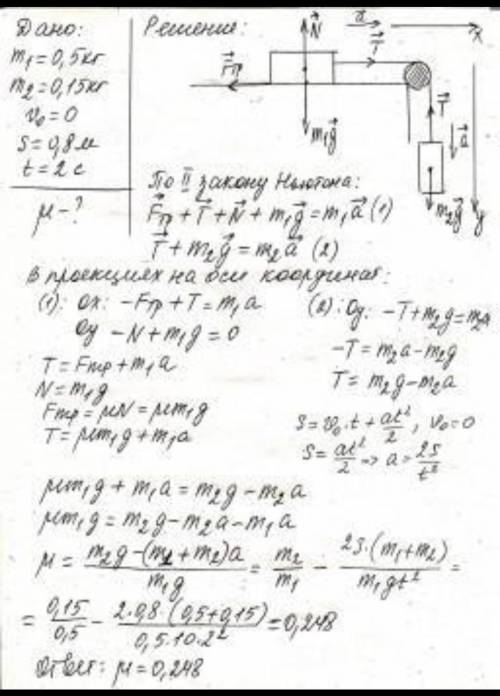 Дано:
m₁=0,5кг
m₂=0,15кг
v₀=0
s=0,8м
t=2с
μ-?
Решение:
N⃗
a⃗
x
F⃗тр
T⃗
m₁g⃗
T⃗
a⃗
m₂g⃗
y
По II закону Ньютона:
F⃗тр+T⃗+N⃗+m₁g⃗=m₁a⃗ (1)
T⃗+m₂g⃗=m₂a⃗ (2)
В проекциях на оси координат:
(1): Ох: -Fтр+T=m₁a
Оу -N+m₁g=0
T=Fтр+m₁a
N=m₁g
Fтр=μN=μm₁g
T=μm₁g+m₁a
(2): Оу: -T+m₂g=m₂a
-T=m₂a-m₂g
T=m₂g-m₂a
s=v₀·t+at²/2, v₀=0
s=at²/2 => a=2s/t²
μm₁g+m₁a=m₂g-m₂a
μm₁g=m₂g-m₂a-m₁a
μ=(m₂g-(m₁+m₂)a)/(m₁g)=m₂/m₁-(2s·(m₁+m₂))/(m₁gt²)=
=0,15/0,5-(2·0,8·(0,5+0,15))/(0,5·10·2²)=0,248
Ответ: μ=0,248